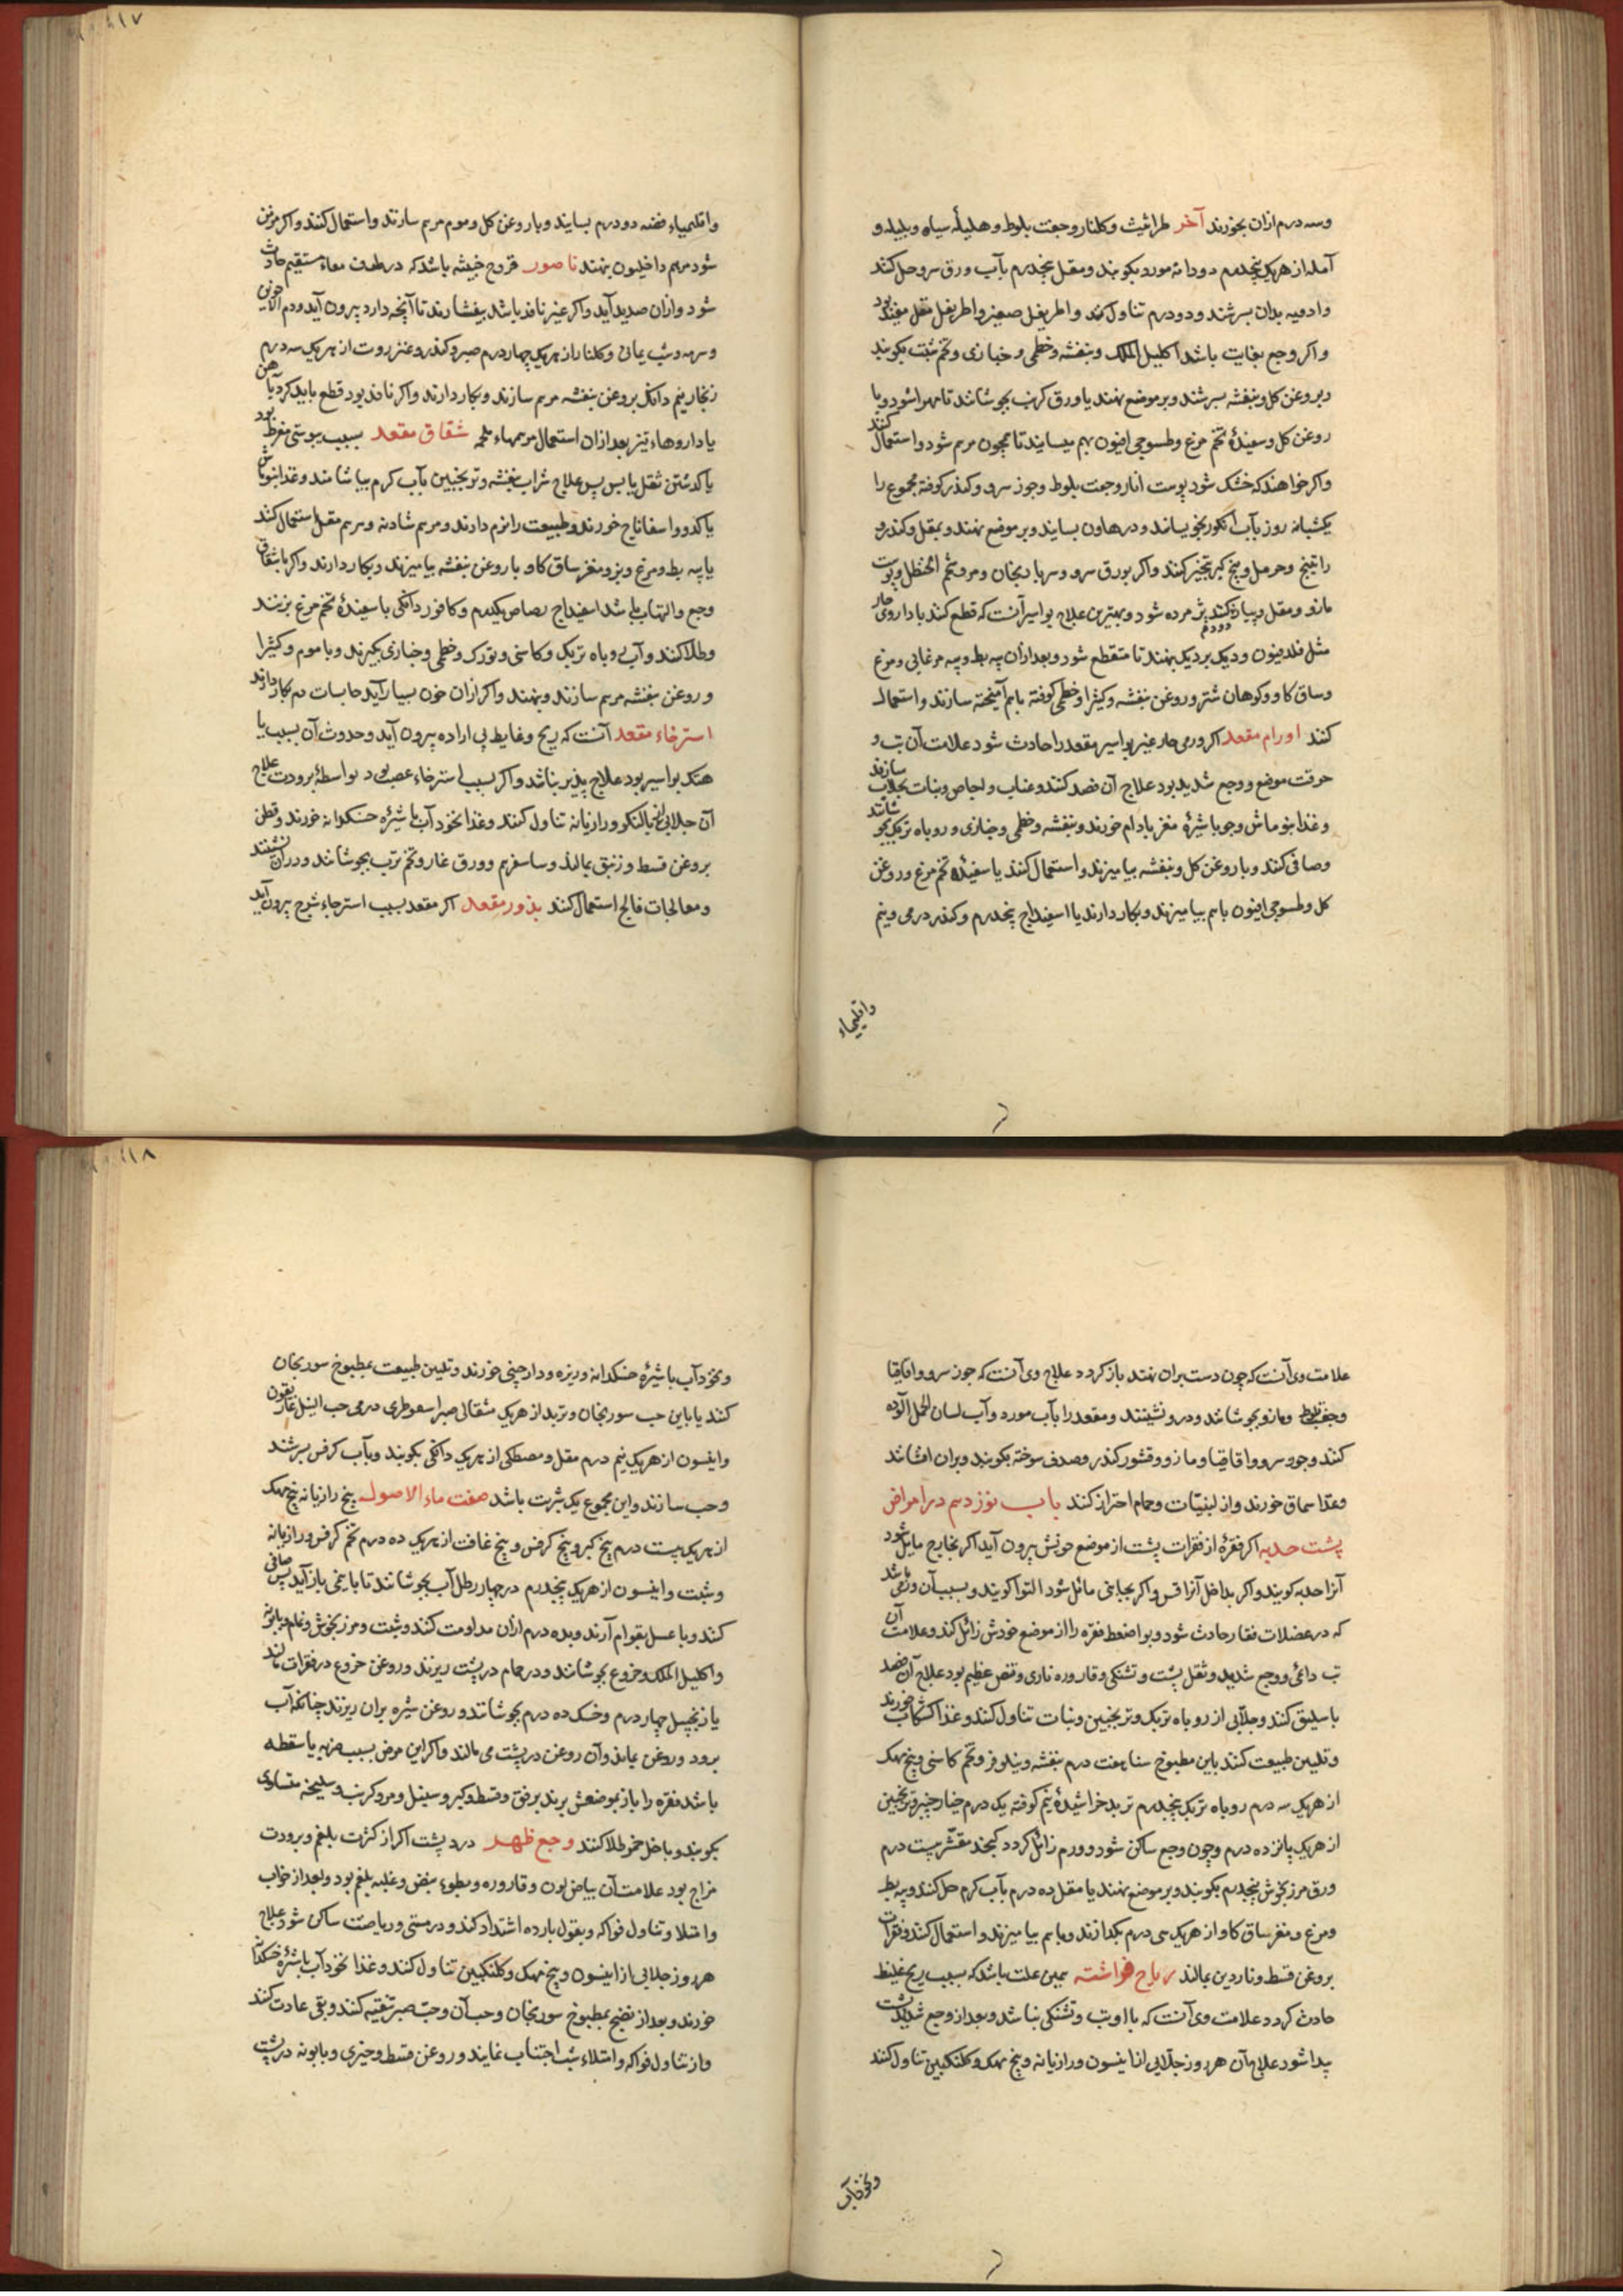 وسه درم ازان بخورند آخر طراثیث و کلنار و جفت بلوط و هلیلۀ سیاه و بلیله و
آمله از هریک پنجدرم دودانه مورد بکوبند ومقل پنجدرم بآب ورق سرو حل کنند
وادویه بدان بسرشند و دودرم تناول کنند و اطریفل صغیر و اطریفل مقل مفید بود
واکر وجع بغایت باشد اکلیل الملک وبنفشه وخطمی و خبازی وتخم شبت بکوبند
وبروغن کل وبنفشه بسرشند و بر موضع نهند یا ورق کرنب بجوشانند تا مهرا شود وبا
روغن کل وسفیدۀ تخم مرغ وطسوجی افیون بهم بسایند تا همچون مرهم شود واستعمال کنند
واکر خواهند که خشک شود پوست انار وجفت بلوط وجوز سرو وکندر کوفته مجموع را
یکشبانه روز بآب انکور بخویسانند و در هاون بسایند وبر موضع نهند و بمقل وکندر و
راتینج وحرمل وبیخ کبر تبخیر کنند واکر بورق سرو وسرباریخان ومرو شحم الحنظل وپوست
مازو ومقل وپیاز دود کنند پژمرده شود وبهترین علاج بواسیر آنست که قطع کنند با داروی حار
مثل فلدفیون ودیک بردیک بنهند تا منقطع شود وبعد ازان پیه بط وپیه مرغابی ومرغ
وساق کاو وکوهان شتر وروغن بنفشه وکثیرا وخطمی کوفته باهم آمیخته سازند واستعمال
کنند اورام مقعد اکر ورمی حار غیر بواسیر مقعد را حادث شود علامات آن تب و
حرقت موضع و وجع شدید بود علاج آن فصد کنند وعناب واجاص ونبات بجلاب سازند
وغذا بنو ماش وجو باشیرۀ مغز بادام خورند وبنفشه وخطمی وخبازی وروباه تربک بجوشانند
وصافی کنند وبا روغن کل وبنفشه بیامیزند واستعمال کنند یا سفیدۀ تخم مرغ وروغن
کل وطسوجی افیون باهم بیامیزند وبکار دارند یا اسفیداج پنجدرم وکندر درمی ونیم
واقلیمیاء
۱۱۷
واقلیمیاء فضه دودرم بسایند وبا روغن کل وموم مرهم سازند واستعمال کنند واکر مزمن
شود مرهم داخلیون بنهند ناصور قروح خبیثه باشد که در طرف معاء مستقیم حادث
شود وازان صدید آید واکر غیر نافذ باشد بیفشارند تا آنچه دارد بیرون آید ودم الاخوین
وسرمه وشب یمانی وکلنار از هریک چهاردرم صبر وکندر وعنزروت از هریک سه درم
زنجار نیم دانک بروغن بنفشه مرهم سازند وبکار دارند واکر نافذ بود قطع باید کرد بآهن
یا داروهاء تیز بعد ازان استعمال مرهمهاء ملحمه شقاق مقعد بسبب یبوستی مفرط بود
یا کذشتن ثفل یابس پس علاج شراب بنفشه وترنجبین بآب کرم بیاشامند وغذا بنو ماش
یا کدو واسفاناج خورند وطبیعت را نرم دارند ومرهم شادنه ومرهم مقل استعمال کنند
یا پیه بط ومرغ وبز ومغز ساق کاو با روغن بنفشه بیامیزند وبکار دارند واکر با شقاق
وجع والتهاب باشد اسفیداج رصاص یکدرم وکافور دانکی با سفیدۀ تخم مرغ بزنند
وطلا کنند وآب روباه تربک وکاسنی وتورک وخطمی وخبازی بکیرند وبا موم وکثیرا
وروغن بنفشه مرهم سازند وبنهند واکر ازان خون بسیار آید حابسات دم بکار دارند
استرخاء مقعد آنست که ریح وغایط بی اراده بیرون آید وحدوث آن بسبب یا
هتک بواسیر بود علاج پذیر نباشد واکر بسبب استرخاء عصب بود بواسطۀ برودت علاج
آن جلابی از بالنکو ورازیانه تناول کنند وغذا نخودآب با شیرۀ خسکدانه خورند وقطن
بروغن قسط وزنبق بمالند وساسفرم وورق غار وتخم ترب بجوشانند ودران نشینند
ومعالجات فالج استعمال کنند بذور مقعد اکر مقعد بسبب استرخاء شرج بیرون آید
علامت وی آنست که چون دست بران نهند باز کردد علاج وی آنست که جوز سرو واقاقیا
وجفت بلوط ومازو بجوشانند ودرو نشینند ومقعد را بآب مورد وآب لسان الحمل آلوده
کنند وجوز سرو واقاقیا ومازو وقشور کندر وصدف سوخته بکوبند وبران افشانند
وغذا سماق خورند واز لبنیات وحمام احتراز کنند باب نوزدهم در امراض
پشت حدبه اکر فقرۀ از فقرات پشت از موضع خویش بیرون آید اکر بخارج مایل شود
آنرا حدبه کویند واکر بداخل آنرا قس واکر بجانبی مائل شود التوا کویند وسبب آن ورمی باشد
که در عضلات فقار حادث شود وبواضغط فقره را از موضع خودش زائل کند وعلامت آن
تب دائمی ووجع شدید وثقل پشت وتشنکی وقاروره ناری ونبض عظیم بود علاج آن فصد
باسلیق کنند وجلابی از روباه تربک وترنجبین ونبات تناول کنند وغذا کشکاب خورند
وتلیین طبیعت کنند باین مطبوخ سنا هفت درم بنفشه ونیلوفر وتخم کاسنی وبیخ مهک
از هریک سه درم روباه تربک پنجدرم تربد خراشیدۀ نیم کوفته یک درم خیارچنبر وترنجبین
از هریک پانزده درم وچون وجع ساکن شود وورم زائل کردد کنجد مقشر بیست درم
ورق مرزنجوش پنجدرم بکوبند وبر موضع نهند یا مقل ده درم بآب کرم حل کنند وپیه بط
ومرغ ومغز ساق کاو از هریک سی درم بکدازند وباهم بیامیزند واستعمال کنند وفقرات
بروغن قسط وناردین بمالند ریاح افراشته همین علت باشد که بسبب ریح غلیظ
حادث کردد علامت وی آنست که با او تب وتشنکی نباشد وبعد از وجع شدید پشت
پیدا شود علاج آن هر روز جلابی از انیسون ورازیانه وبیخ مهک وکلنکبین تناول کنند
ونخودآب
۱۱۸
ونخودآب با شیرۀ خسکدانه وزیره ودارچینی خورند وتلیین طبیعت بمطبوخ سورنجان
کنند یا باین حب سورنجان وتربد از هریک مثقالی صبر اسقوطری درمی حب النیل غاریقون
وانیسون از هریک نیم درم مقل ومصطکی از هریک دانکی بکوبند وبآب کرفس بسرشند
وحب سازند واین مجموع یک شربت باشد صفت ماء الاصول بیخ رازیانه بیخ مهک
از هریک بیست درم بیخ کبر وبیخ کرفس وبیخ غافت از هریک ده درم تخم کرفس ورازیانه
وشبت وانیسون از هریک پنجدرم در چهار رطل آب بجوشانند تا با نیمی باز آید پس صافی
کنند وبا عسل بقوام آرند وبده درم ازان مداومت کنند وشبت ومرزنجوش ونمام وبابونه
واکلیل الملک وخروع بجوشانند ودر حمام در پشت ریزند وروغن خروع در فقرات مالند
یا زنجبیل چهار درم وخسک ده درم بجوشانند وروغن شیره بران ریزند چنانکه آب
برود وروغن بماند وآن روغن در پشت می مالند واکر این مرض بسبب ضربه یا سقطه
باشد فقره را باز بموضعش برند برفق وقسط وکبر وسنبل ومرو کرنب وسلیخه متساوی
بکوبند وباخل خمر طلا کنند وجع ظهر درد پشت اکر از کثرت بلغم وبرودت
مزاج بود علامت آن بیاض لون وقاروره وبطوء نبض وغلبه بلغم بود وبعد از خواب
وامتلا وتناول فواکه وبقول بارده اشتداد کند ودرمستی وریاضت ساکن شود علاج
هر روز جلابی از انیسون وبیخ مهک وکلنکبین تناول کنند وغذا نخودآب با شیرۀ خسکدانه
خورند وبعد از نضج بمطبوخ سورنجان وحب آن وحب صبر تنقیه کنند وبقی عادت کنند
واز تناول فواکه وامتلاء شب اجتناب نمایند وروغن قسط وخیری وبابونه در پشت